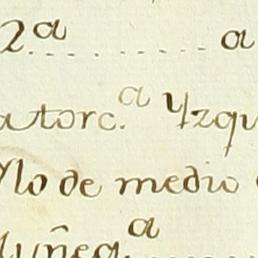 2.ª a
atorc.ª Yzqu
Ylo de medio
uñeq.ª